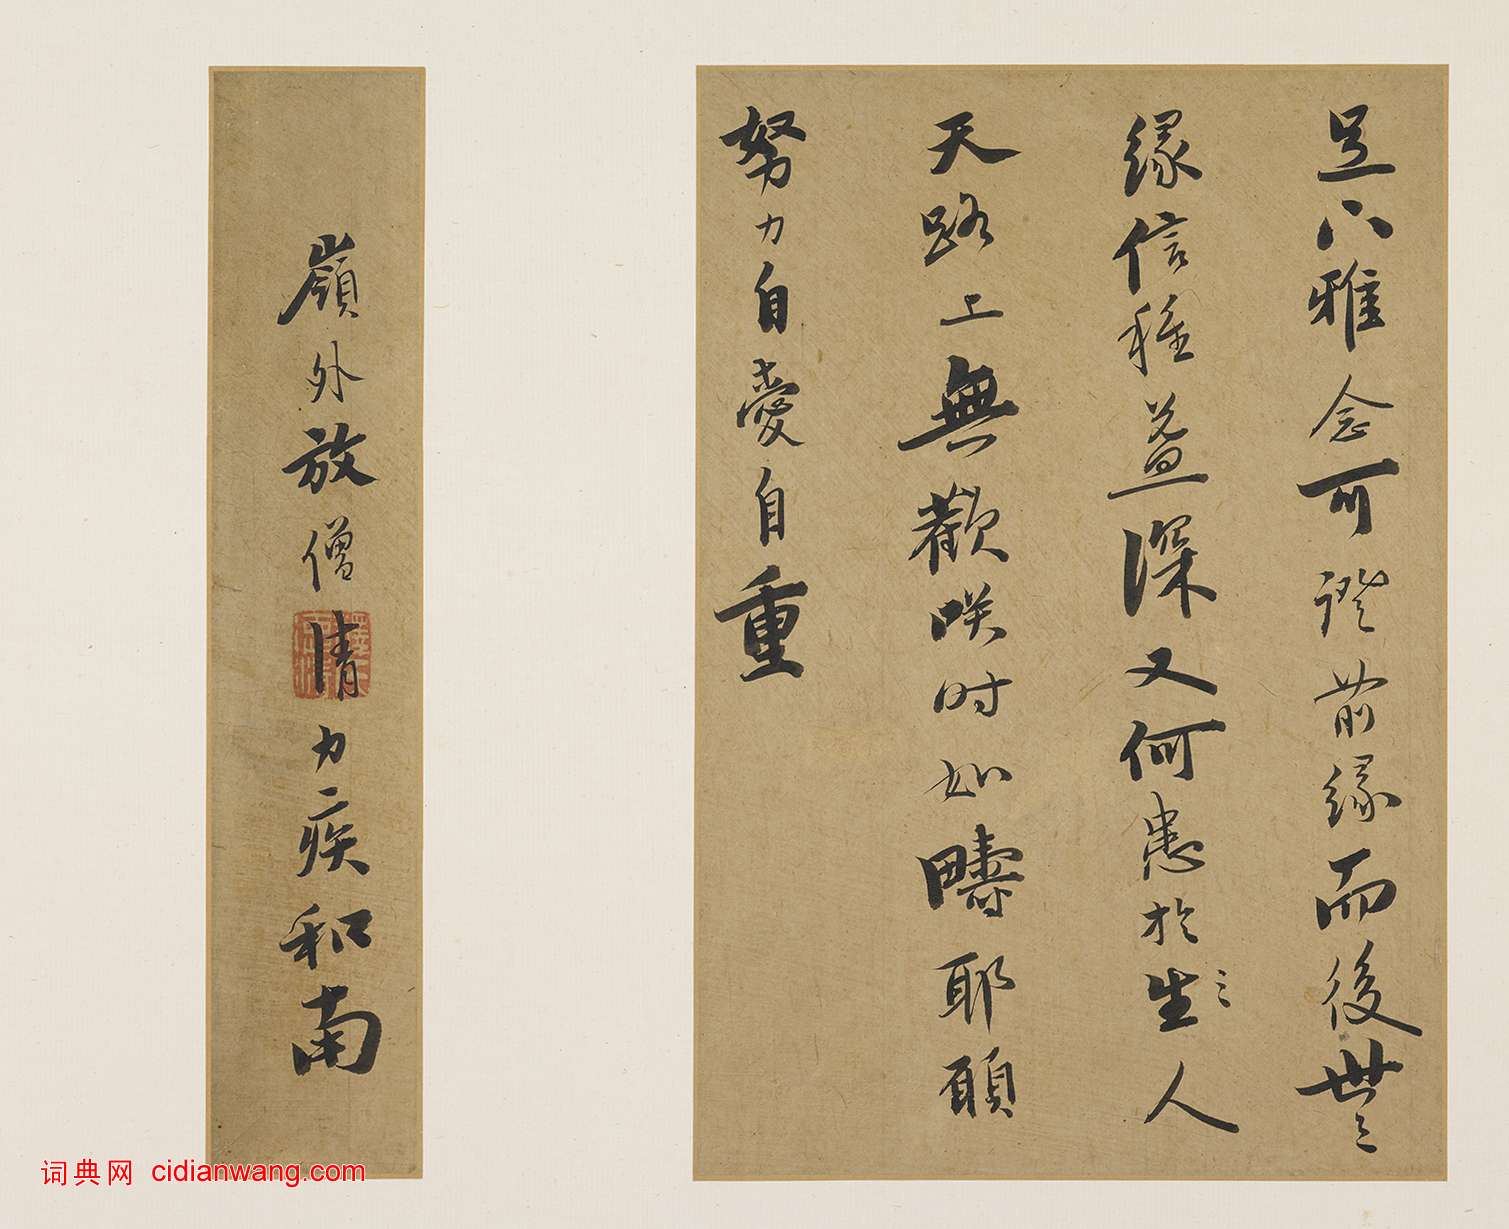 足下雅念可證前緣而後世〻
緣信種益深又何患於生〻人
天路上無歡咲时如疇耶願
努力自愛自重
嶺外放僧清力疾和南
词典网 cidianwang.com